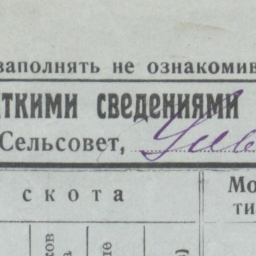 заполнять не ознакомив
ткими сведениями
Сельсовет,
скота
Мо
ти
ков